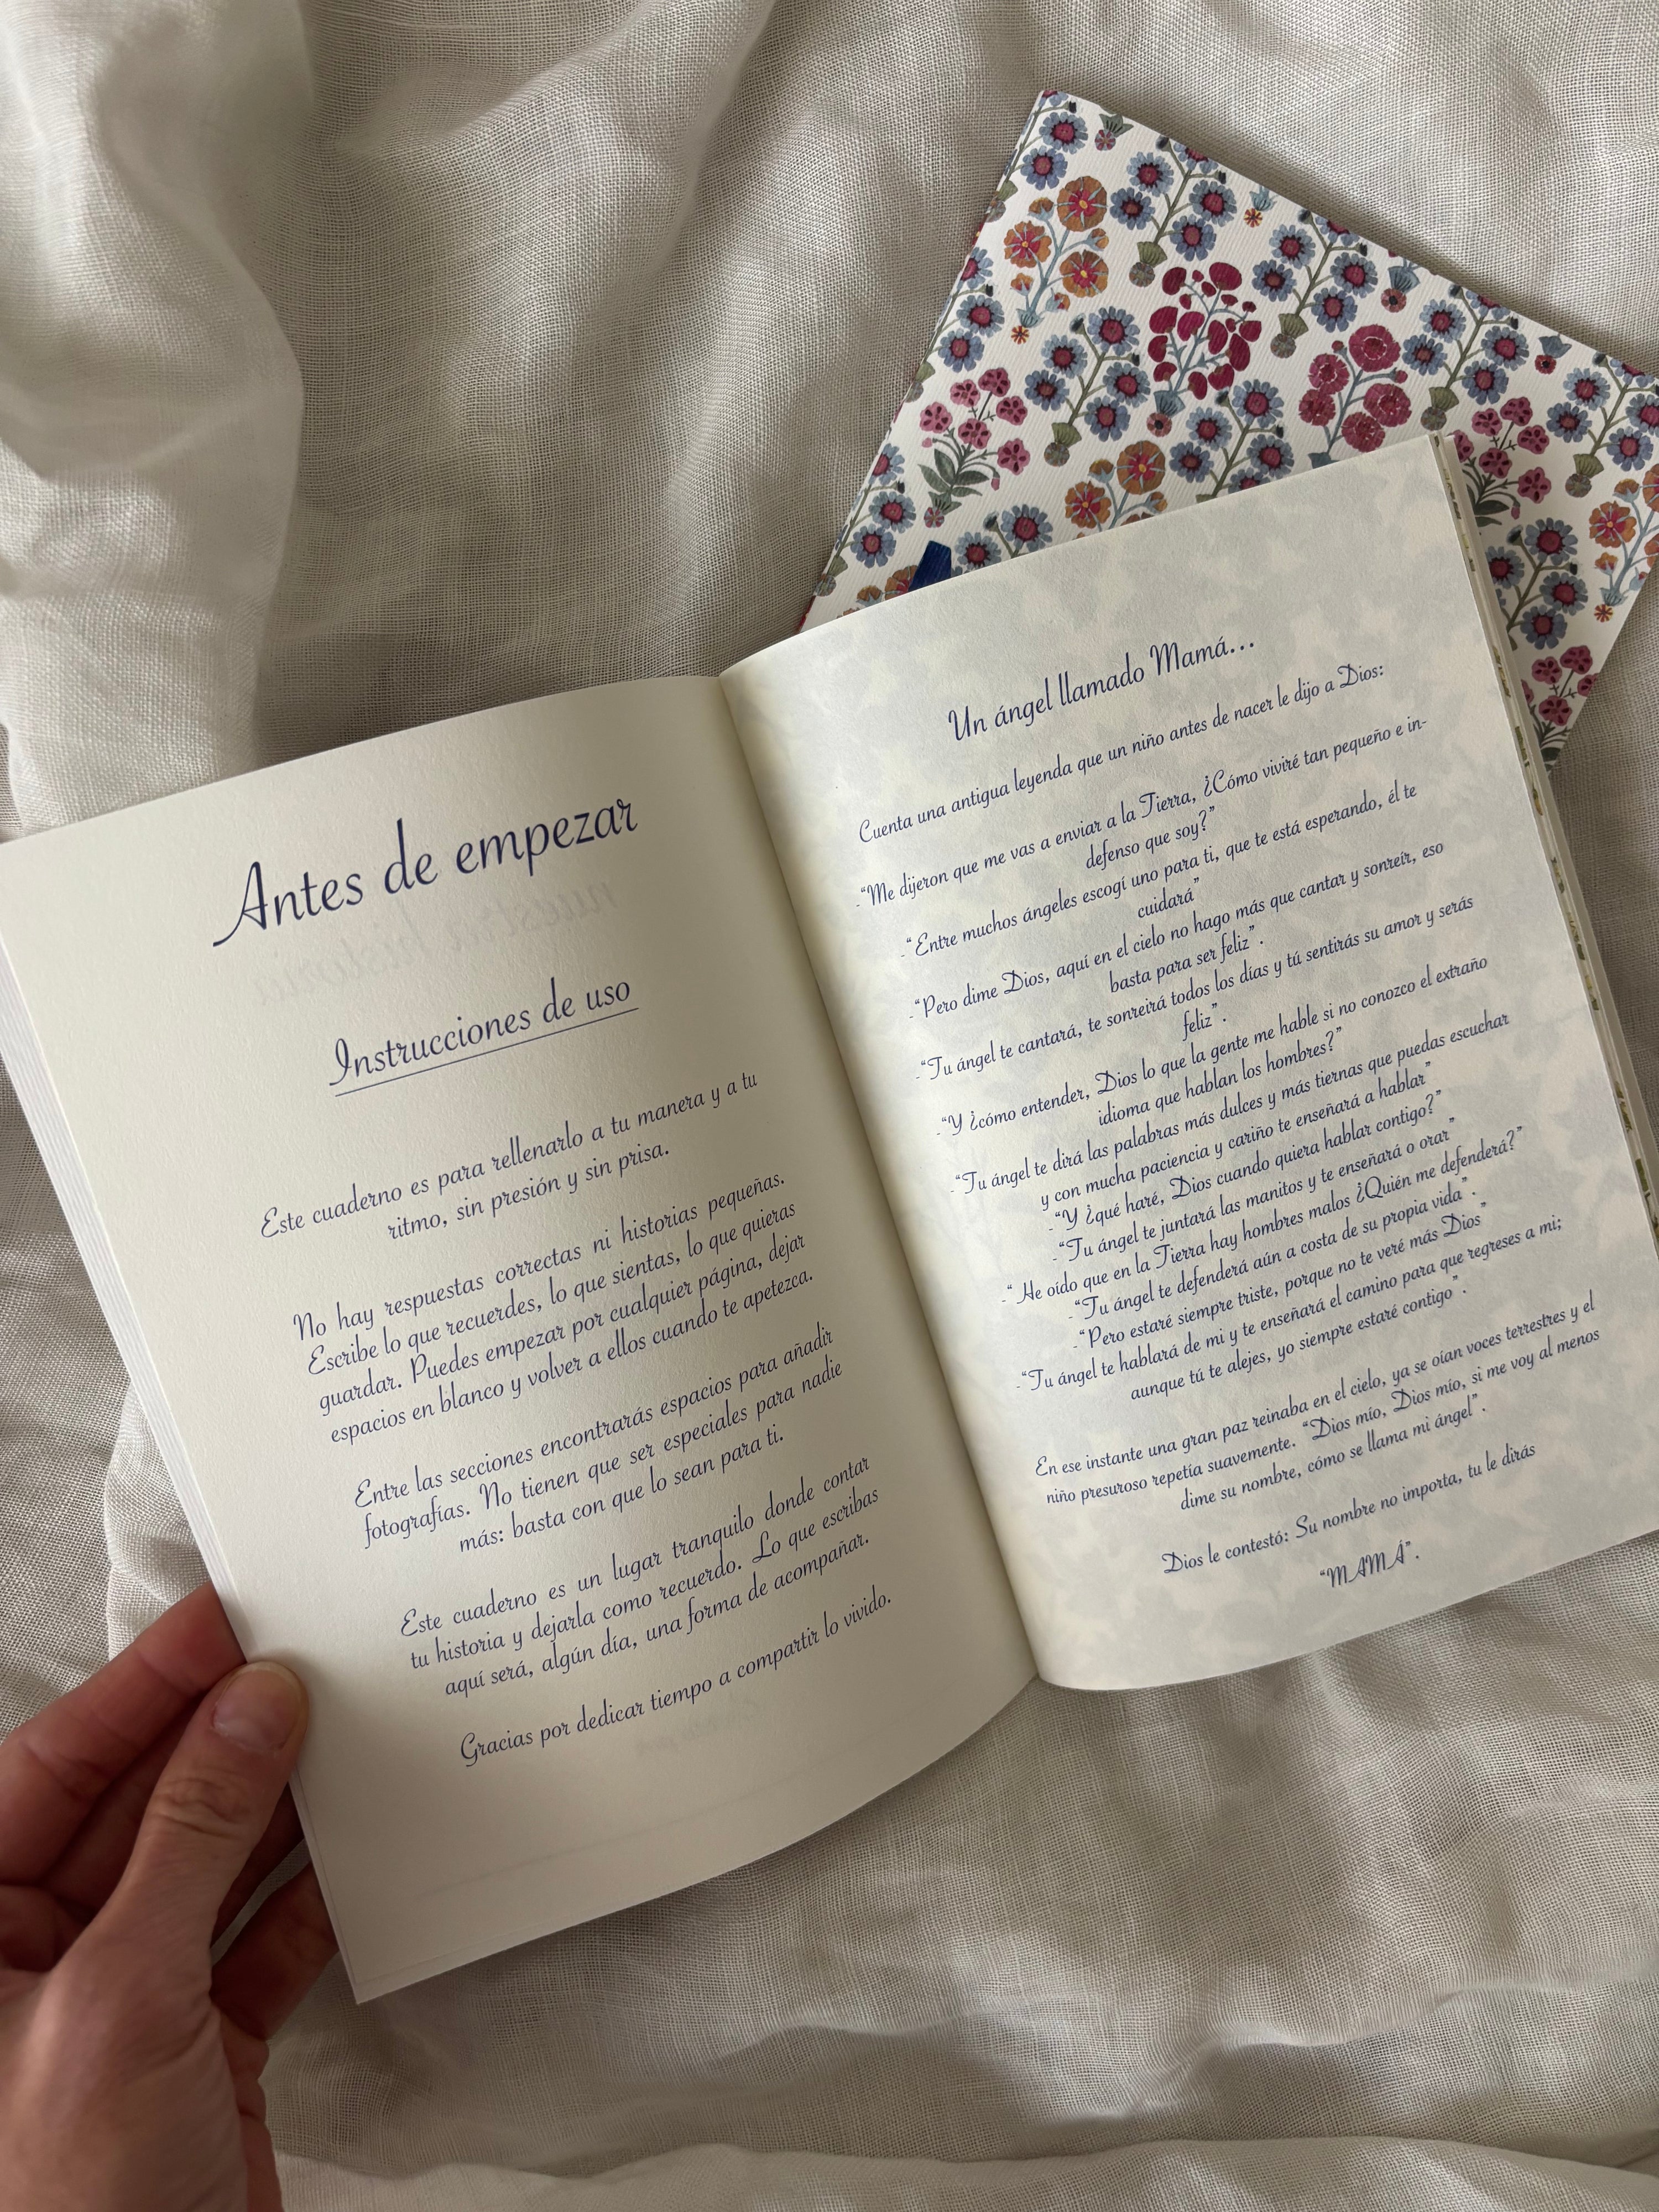 Antes de empezar
Instrucciones de uso
Este cuaderno es para rellenarlo a tu manera y a tu
ritmo, sin presión y sin prisa.
No hay respuestas correctas ni historias pequeñas.
Escribe lo que recuerdes, lo que sientas, lo que quieras
guardar. Puedes empezar por cualquier página, dejar
espacios en blanco y volver a ellos cuando te apetezca.
Entre las secciones encontrarás espacios para añadir
fotografías. No tienen que ser especiales para nadie
más: basta con que lo sean para ti.
Este cuaderno es un lugar tranquilo donde contar
tu historia y dejarla como recuerdo. Lo que escribas
aquí será, algún día, una forma de acompañar.
Gracias por dedicar tiempo a compartir lo vivido.
Un ángel llamado Mamá...
Cuenta una antigua leyenda que un niño antes de nacer le dijo a Dios:
-"Me dijeron que me vas a enviar a la Tierra, ¿Cómo viviré tan pequeño e in-
defenso que soy?"
-"Entre muchos ángeles escogí uno para ti, que te está esperando, él te
cuidará"
-"Pero dime Dios, aquí en el cielo no hago más que cantar y sonreír, eso
basta para ser feliz".
-"Tu ángel te cantará, te sonreirá todos los días y tú sentirás su amor y serás
feliz".
-"Y ¿cómo entender, Dios lo que la gente me hable si no conozco el extraño
idioma que hablan los hombres?"
-"Tu ángel te dirá las palabras más dulces y más tiernas que puedas escuchar
y con mucha paciencia y cariño te enseñará a hablar"
-"Y ¿qué haré, Dios cuando quiera hablar contigo?"
-"Tu ángel te juntará las manitos y te enseñará o orar"
-" He oído que en la Tierra hay hombres malos ¿Quién me defenderá?"
-"Tu ángel te defenderá aún a costa de su propia vida".
-"Pero estaré siempre triste, porque no te veré más Dios"
-"Tu ángel te hablará de mi y te enseñará el camino para que regreses a mi;
aunque tú te alejes, yo siempre estaré contigo".
En ese instante una gran paz reinaba en el cielo, ya se oían voces terrestres y el
niño presuroso repetía suavemente. "Dios mío, Dios mío, si me voy al menos
dime su nombre, cómo se llama mi ángel".
Dios le contestó: Su nombre no importa, tu le dirás
"MAMÁ".